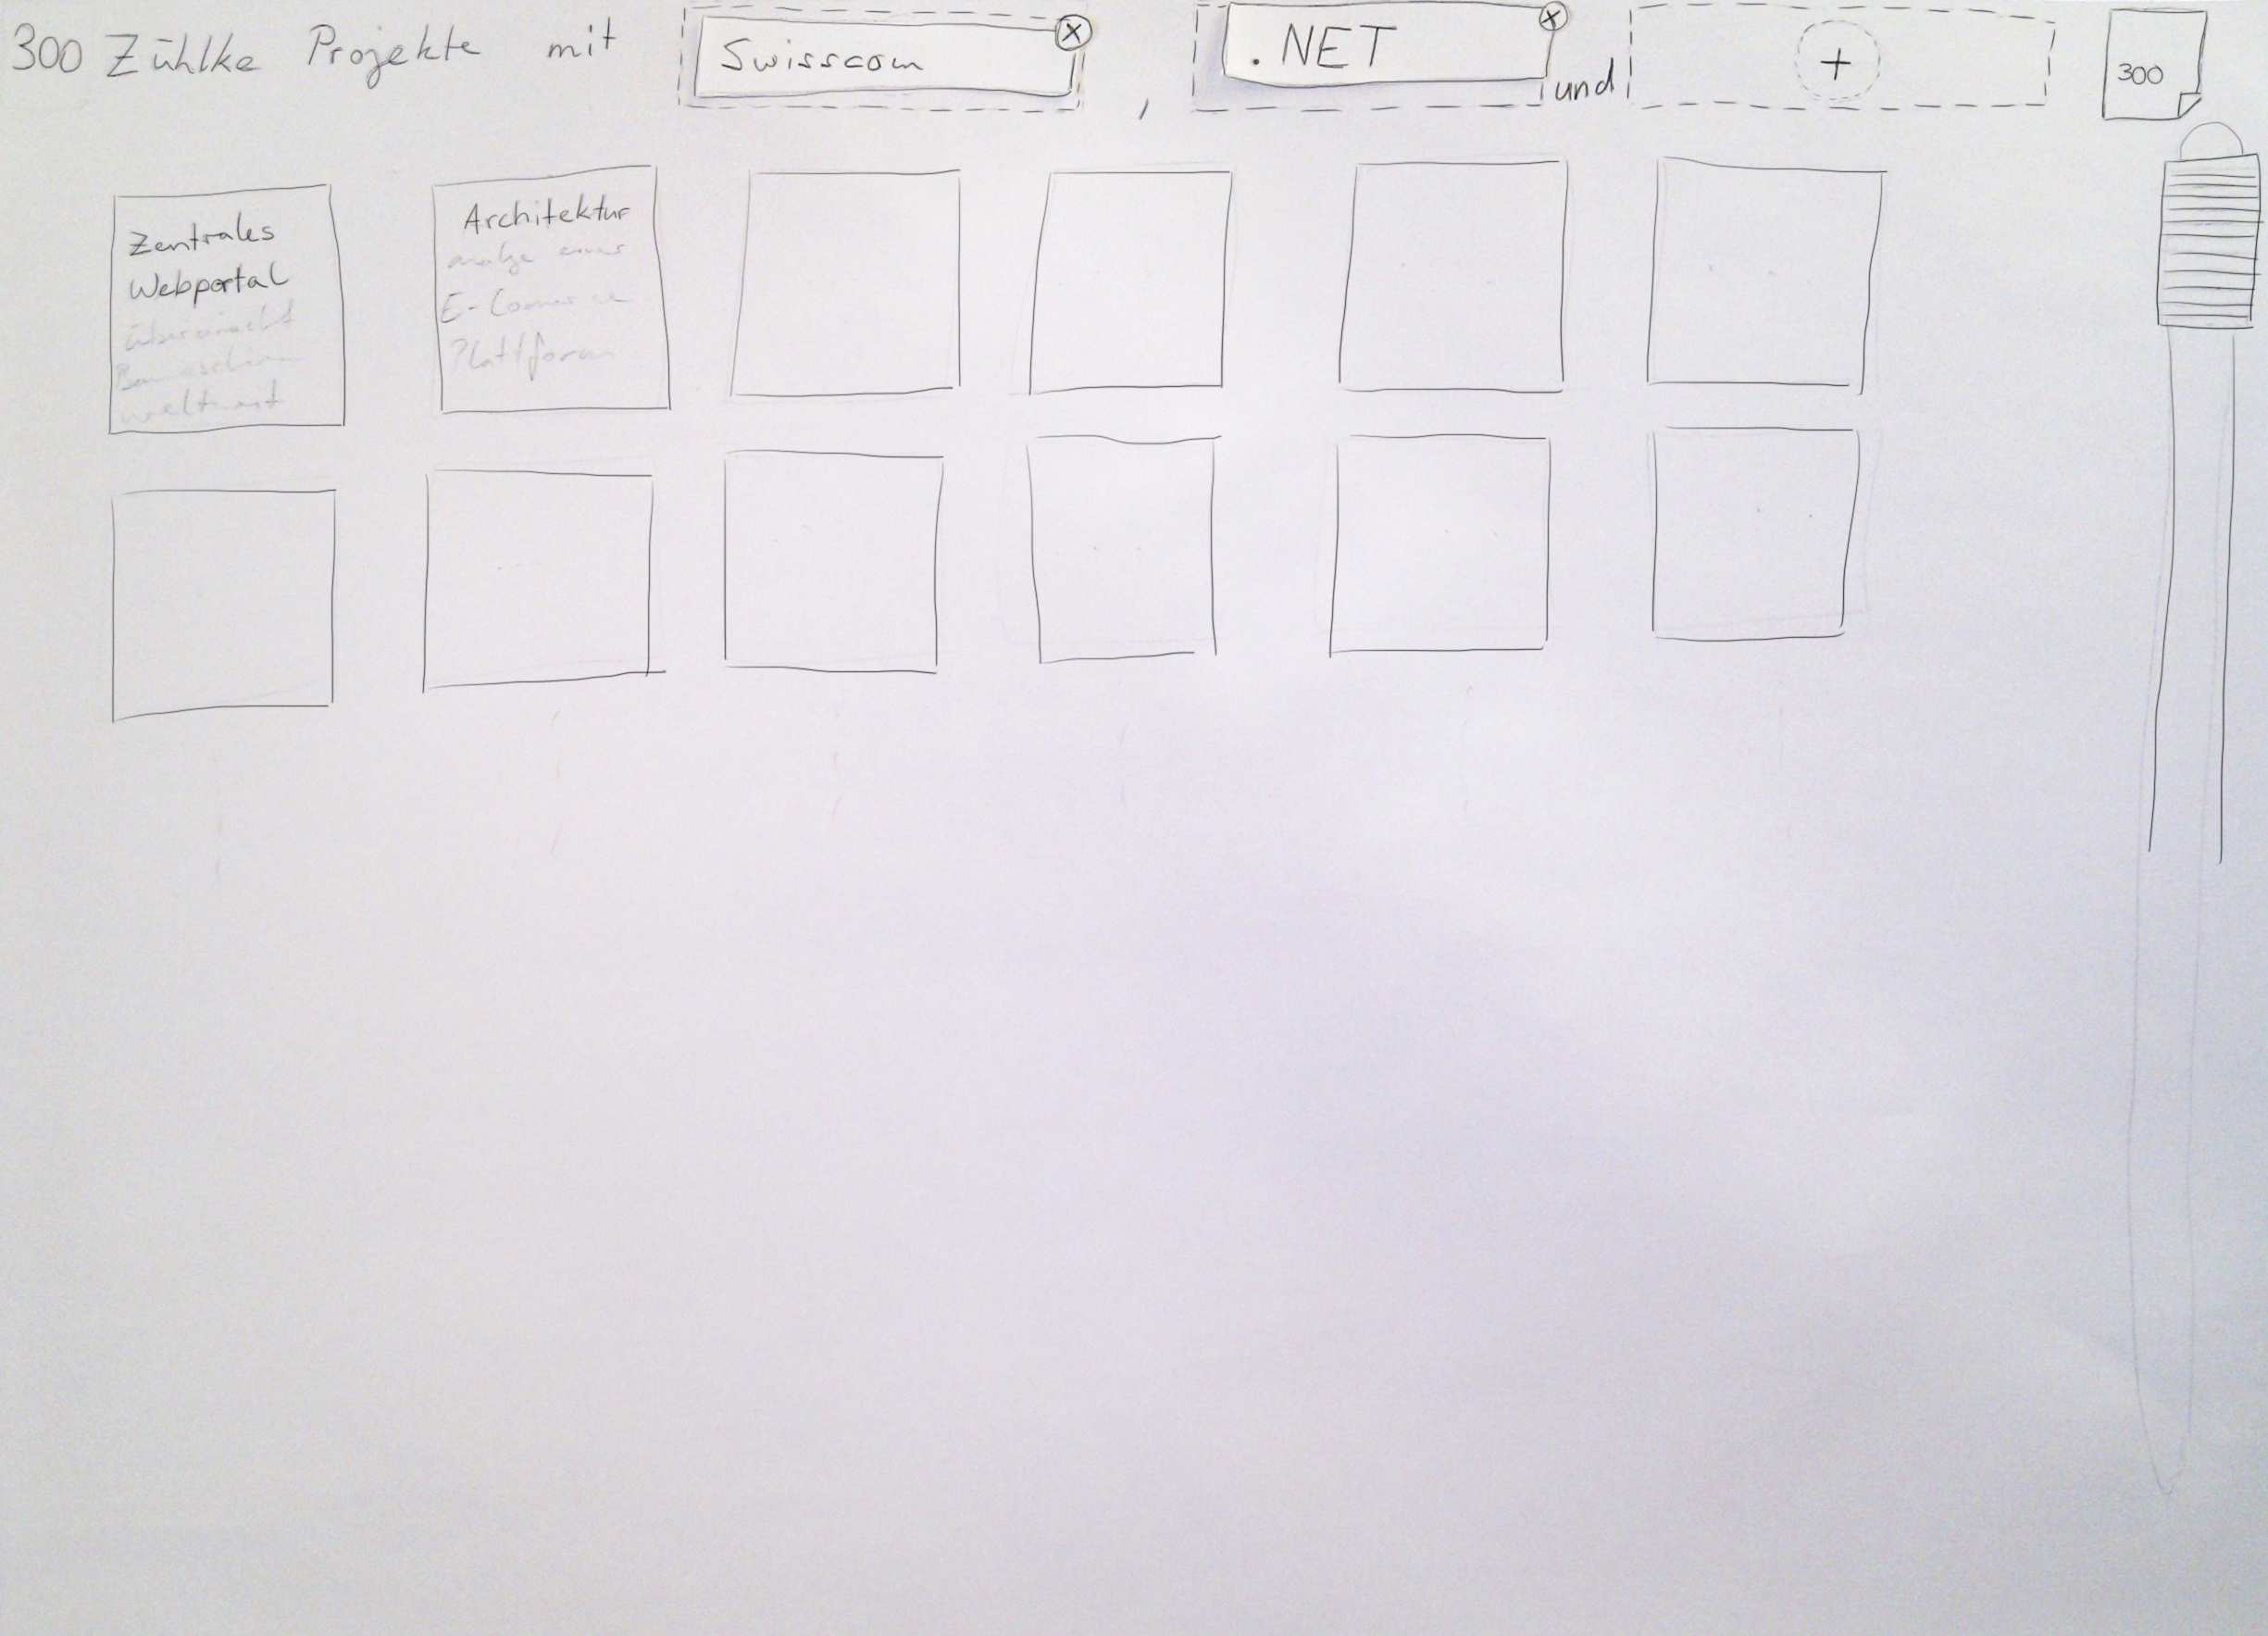 300 Zühlke Projekte mit Swisscom , .NET und +
300
Zentrales
Webportal
überwacht
weltweit
Architektur
einer
E-Comerce
Plattform